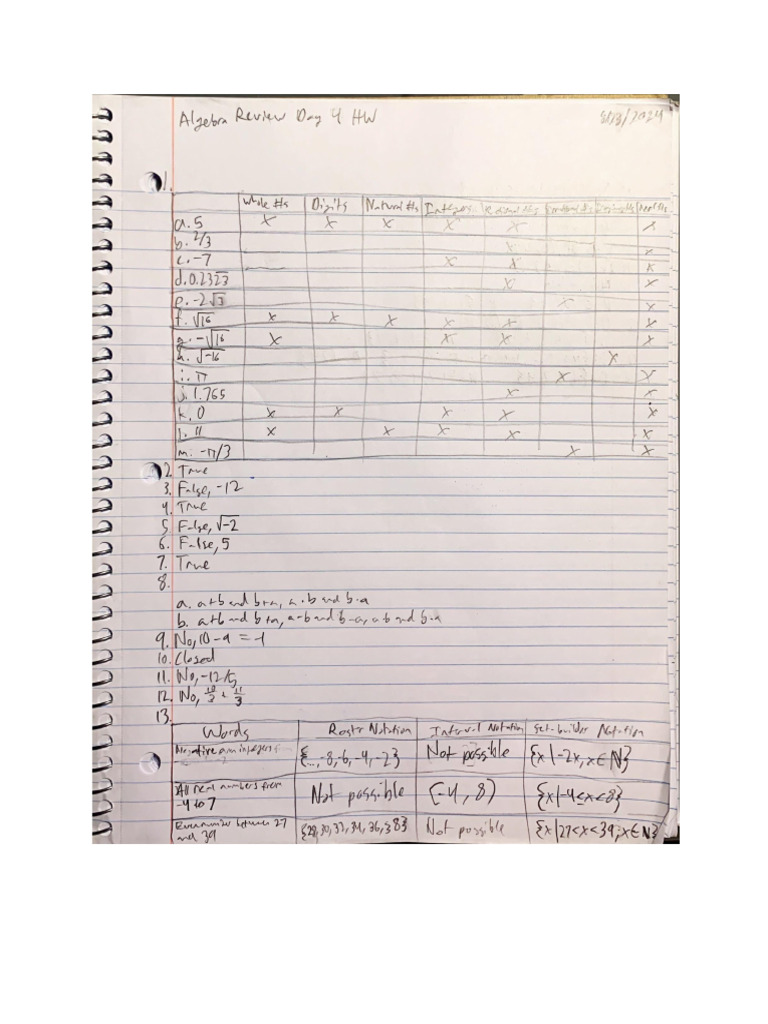 Algebra Review Day 4 HW
1.
Whole #s Digits Natural #s Integers Rational #s Irrational #s Real #s
a. 5 x x x x x x
b. 2/3 x x
c. -7 x x x
d. 0.2323 x x
e. -2√3 x x
f. √16 x x x x x x
g. -√16 x x x x
h. √-16 x
i. π x x
j. 1.765 x x
k. 0 x x x x x
l. 11 x x x x x
m. -π/3 x x
2. True
3. False, -12
4. True
5. False, √-2
6. False, 5
7. True
8.
a. a+b and b+a, a·b and b·a
b. a+b and b+a, a-b and b-a, a·b and b·a
9. No,
10. Closed
11. No, -12/5
12. No,
13.
Words Roster Notation Interval Notation Set-builder Notation
Negative even integers {..., -8, -6, -4, -2} Not possible {x | -2x, x ∈ N}
All real numbers from -4 to 7 Not possible (-4, 8) {x | -4≤x<8}
between 27 and 39 {28, 30, 32, 34, 36, 38} Not possible {x | 27<x<39, x ∈ N}